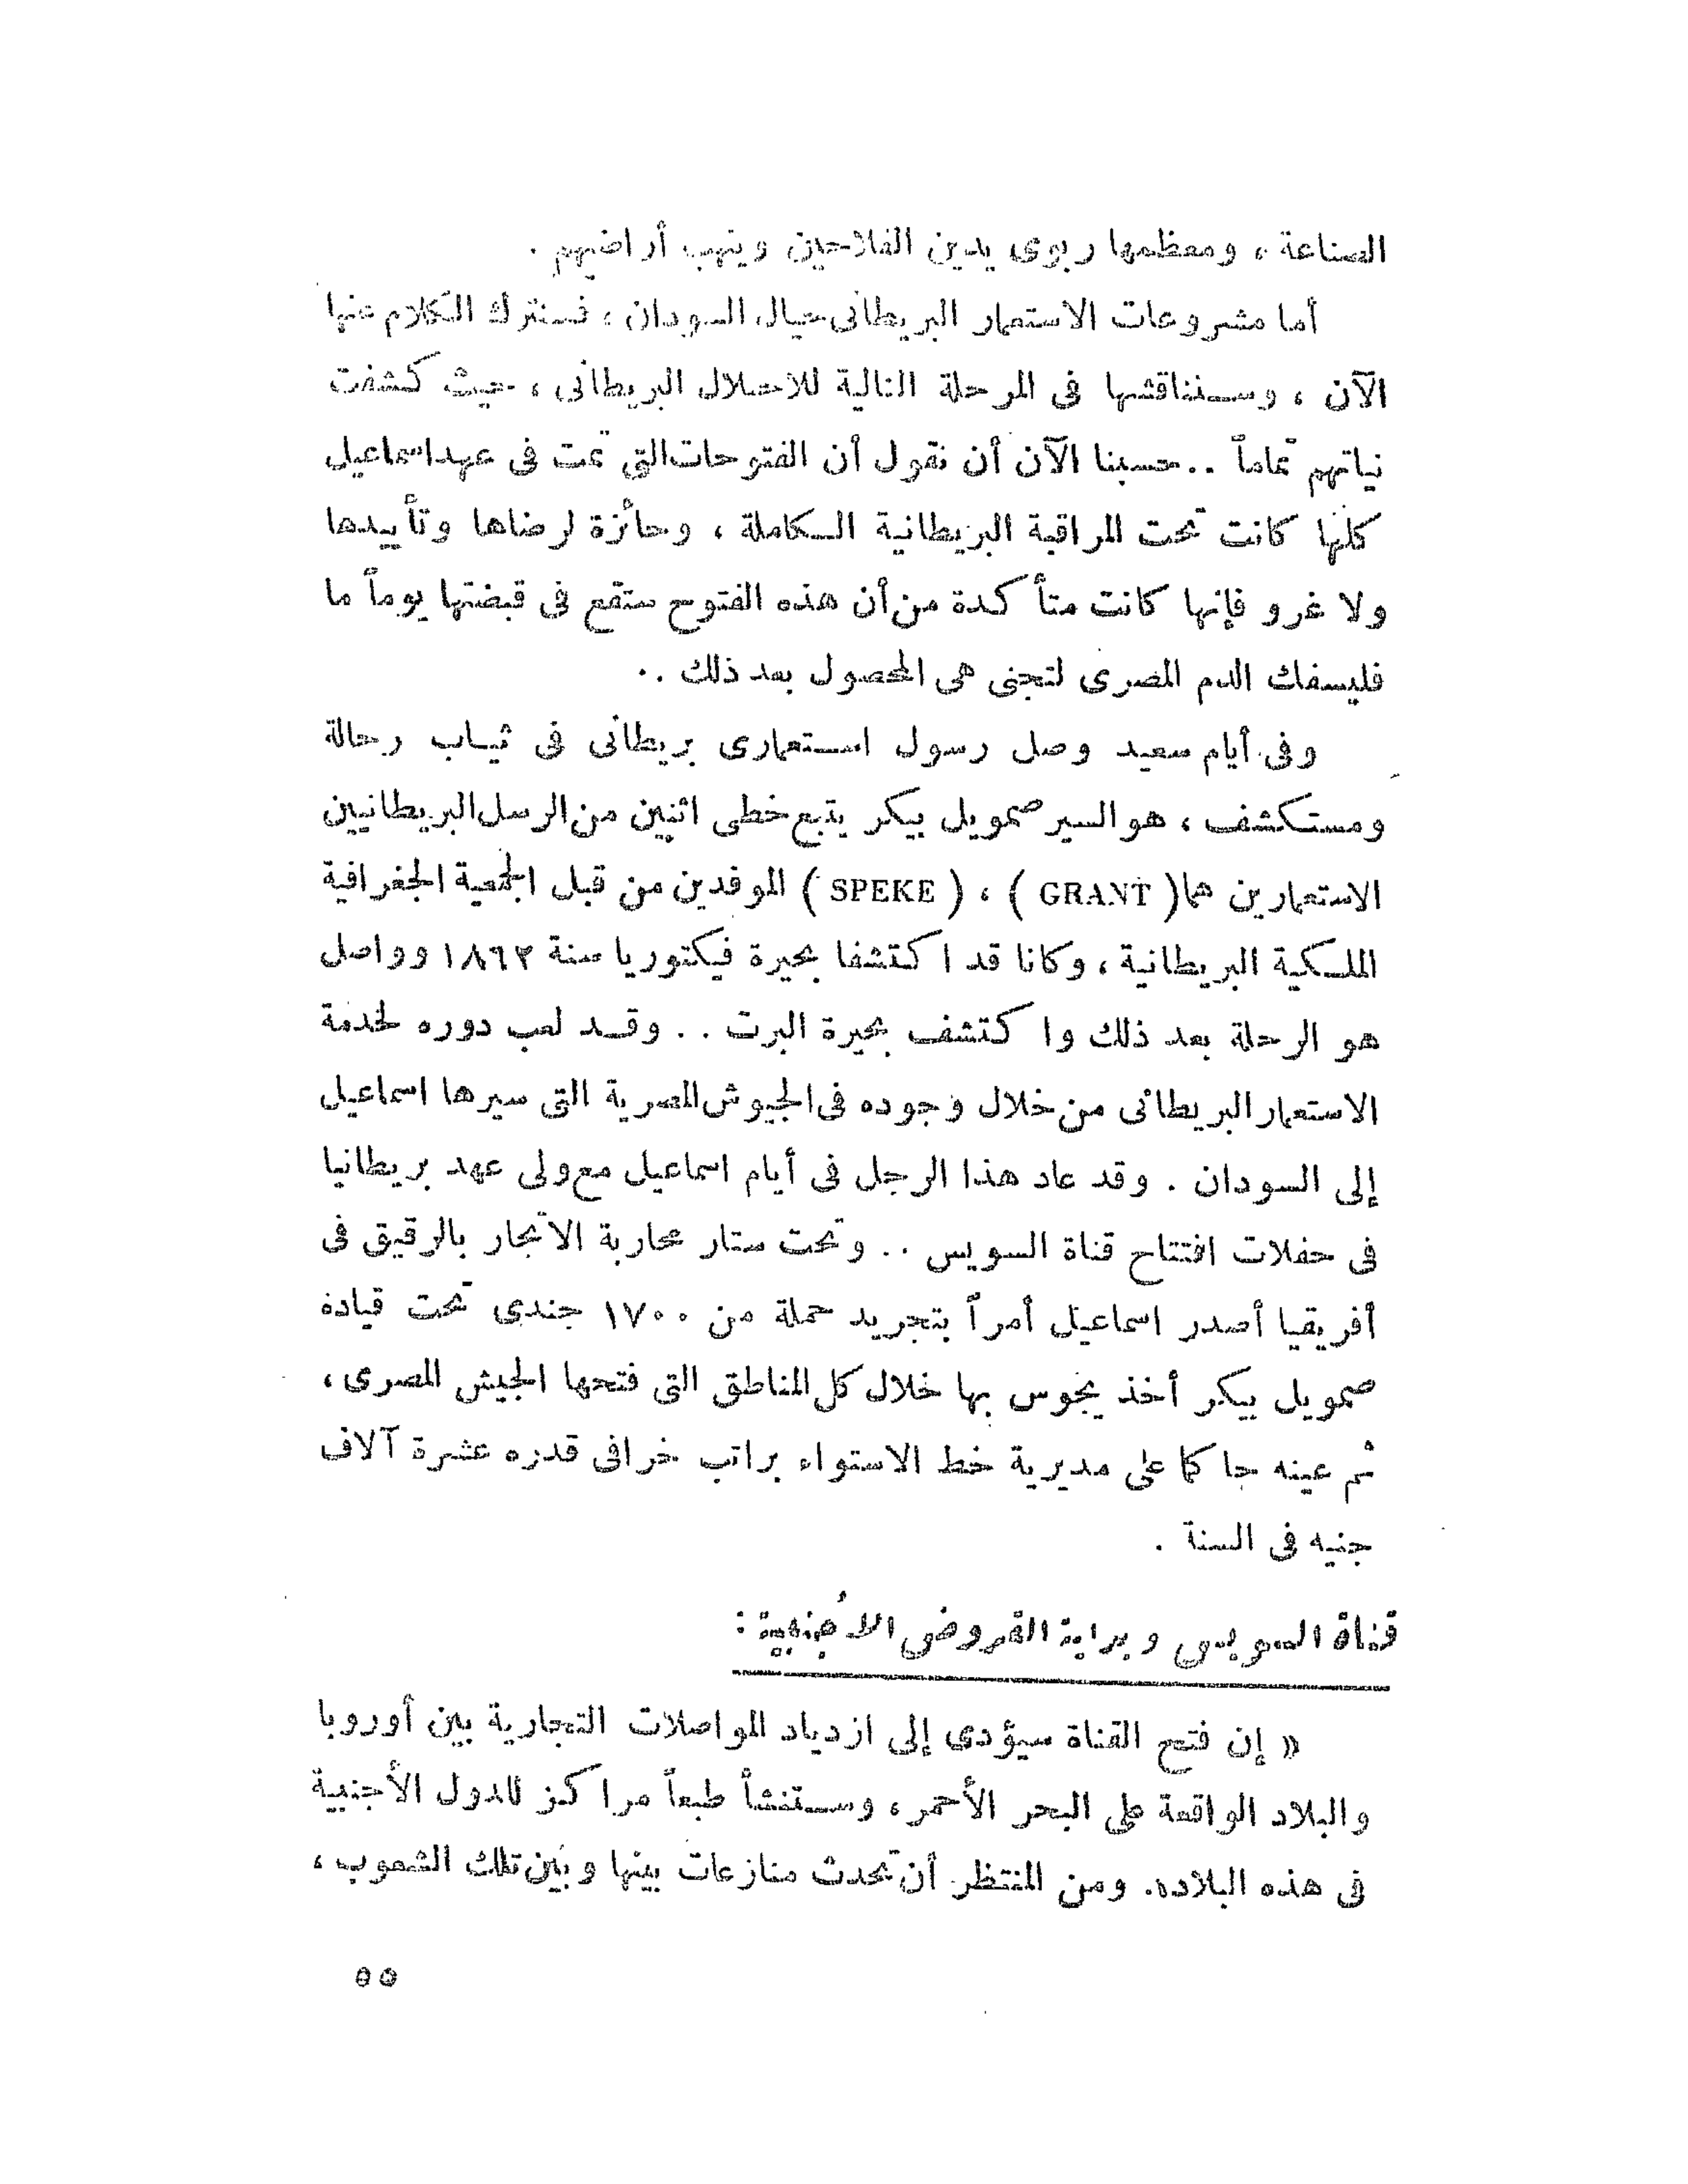 الصناعة ، ومعظمها ربوى يدين الفلاحين وينهب أراضيهم .
أما مشروعات الاستعمار البريطانى حيال السودان ، فسنترك الكلام عنها
الآن ، وسنناقشها فى المرحلة التالية للاحتلال البريطانى ، حيث كشفت
نياتهم تماماً .. حسبنا الآن أن نقول أن الفتوحات التى تمت فى عهد اسماعيل
كلها كانت تحت المراقبة البريطانية الكاملة ، وحائزة لرضاها وتأييدها
ولا غرو فإنها كانت متأكدة من أن هذه الفتوح ستقع فى قبضتها يوماً ما
فليسفك الدم المصرى لتجنى هى المحصول بعد ذلك ..
وفى أيام سعيد وصل رسول استعمارى بريطانى فى ثياب رحالة
ومستكشف ، هو السير صمويل بيكر يتبع خطى اثنين من الرسل البريطانيين
الاستعمارين هما ( GRANT ) ، ( SPEKE ) الموفدين من قبل الجمعية الجغرافية
الملكية البريطانية ، وكانا قد اكتشفا بحيرة فيكتوريا سنة ١٨٦٢ وواصل
هو الرحلة بعد ذلك واكتشف بحيرة البرت .. وقد لعب دوره لخدمة
الاستعمار البريطانى من خلال وجوده فى الجيوش المصرية التى سيرها اسماعيل
إلى السودان . وقد عاد هذا الرجل فى أيام اسماعيل مع ولى عهد بريطانيا
فى حفلات افتتاح قناة السويس .. وتحت ستار محاربة الاتجار بالرقيق فى
أفريقيا أصدر اسماعيل أمراً بتجريد حملة من ١٧٠٠ جندى تحت قيادة
صمويل بيكر أخذ يجوس بها خلال كل المناطق التى فتحها الجيش المصرى ،
ثم عينه حاكما على مديرية خط الاستواء براتب خرافى قدره عشرة آلاف
جنيه فى السنة .
قناة السويس وبداية القروض الأجنبية :
« إن فتح القناة سيؤدى إلى ازدياد المواصلات التجارية بين أوروبا
والبلاد الواقعة على البحر الأحمر ، وستنشأ طبعاً مراكز للدول الأجنبية
فى هذه البلاده. ومن المنتظر أن تحدث منازعات بينها وبين تلك الشعوب ،
٥٥